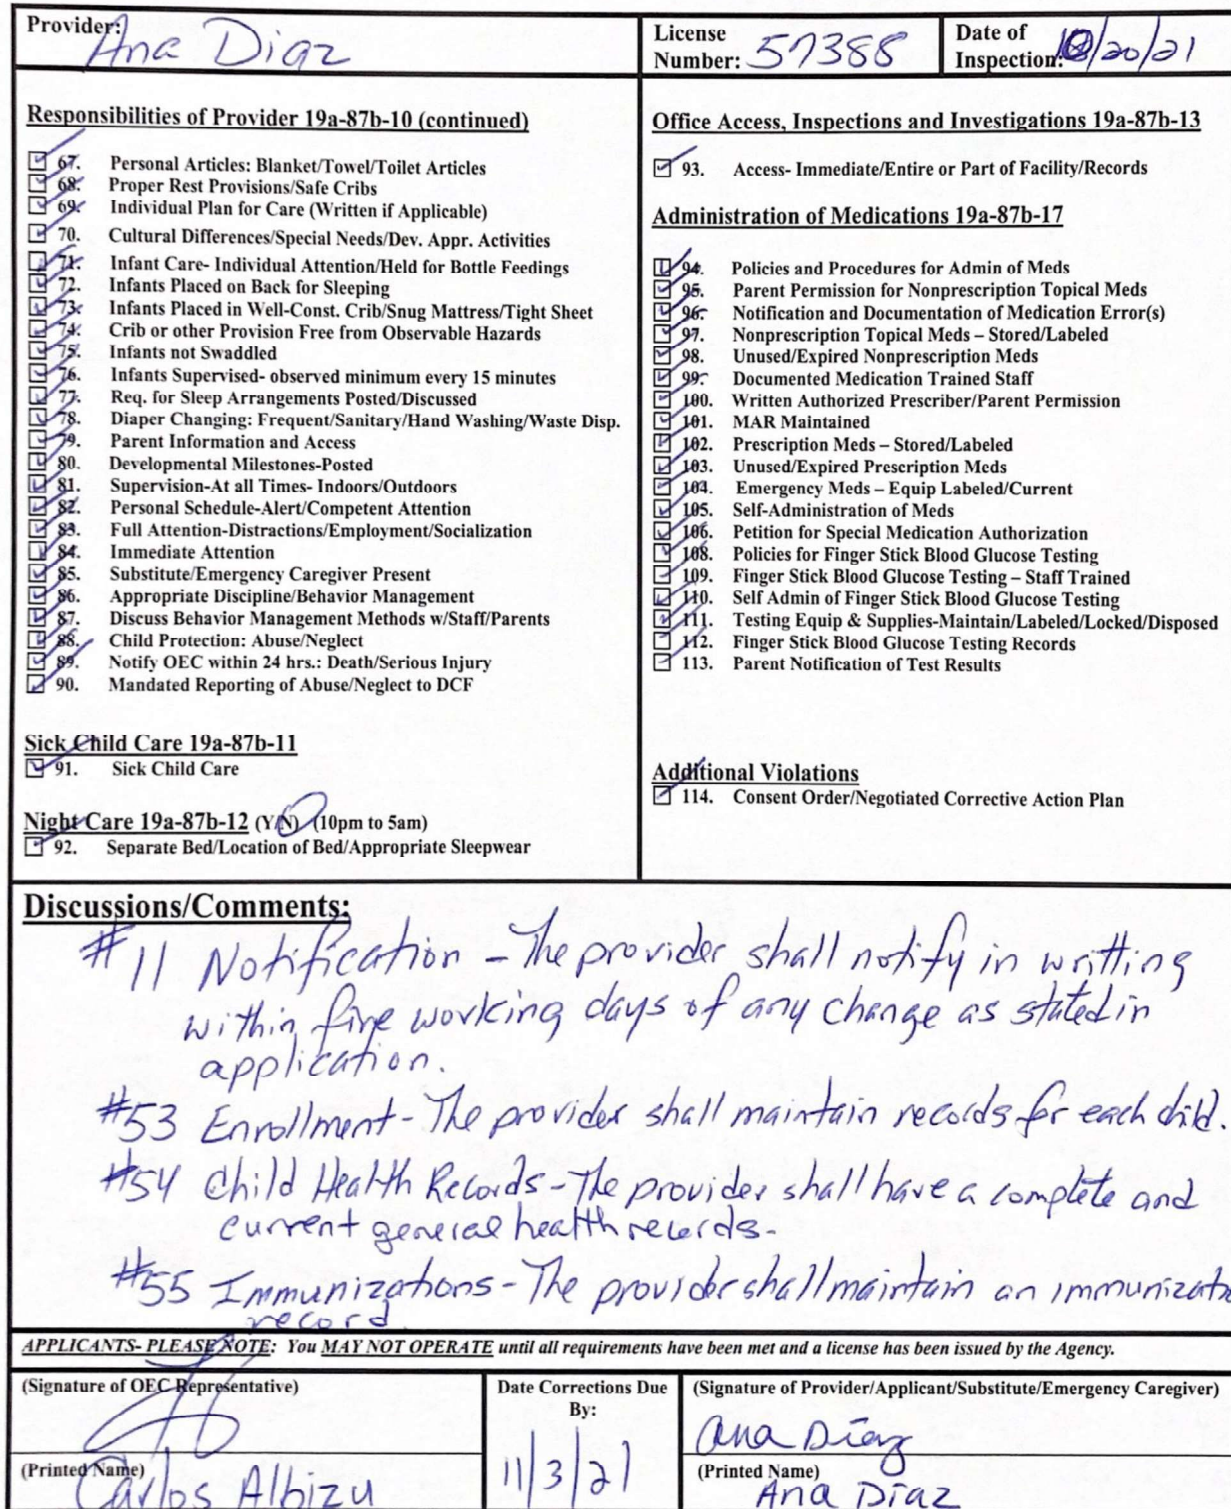 Provider: Ana Diaz
License Number: 57388
Date of Inspection: 10/20/21
Responsibilities of Provider 19a-87b-10 (continued)
67. Personal Articles: Blanket/Towel/Toilet Articles
68. Proper Rest Provisions/Safe Cribs
69. Individual Plan for Care (Written if Applicable)
70. Cultural Differences/Special Needs/Dev. Appr. Activities
71. Infant Care- Individual Attention/Held for Bottle Feedings
72. Infants Placed on Back for Sleeping
73. Infants Placed in Well-Const. Crib/Snug Mattress/Tight Sheet
74. Crib or other Provision Free from Observable Hazards
75. Infants not Swaddled
76. Infants Supervised- observed minimum every 15 minutes
77. Req. for Sleep Arrangements Posted/Discussed
78. Diaper Changing: Frequent/Sanitary/Hand Washing/Waste Disp.
79. Parent Information and Access
80. Developmental Milestones-Posted
81. Supervision-At all Times- Indoors/Outdoors
82. Personal Schedule-Alert/Competent Attention
83. Full Attention-Distractions/Employment/Socialization
84. Immediate Attention
85. Substitute/Emergency Caregiver Present
86. Appropriate Discipline/Behavior Management
87. Discuss Behavior Management Methods w/Staff/Parents
88. Child Protection: Abuse/Neglect
89. Notify OEC within 24 hrs.: Death/Serious Injury
90. Mandated Reporting of Abuse/Neglect to DCF
Sick Child Care 19a-87b-11
91. Sick Child Care
Night Care 19a-87b-12 (Y/N) (10pm to 5am)
92. Separate Bed/Location of Bed/Appropriate Sleepwear
Office Access, Inspections and Investigations 19a-87b-13
93. Access- Immediate/Entire or Part of Facility/Records
Administration of Medications 19a-87b-17
94. Policies and Procedures for Admin of Meds
95. Parent Permission for Nonprescription Topical Meds
96. Notification and Documentation of Medication Error(s)
97. Nonprescription Topical Meds – Stored/Labeled
98. Unused/Expired Nonprescription Meds
99. Documented Medication Trained Staff
100. Written Authorized Prescriber/Parent Permission
101. MAR Maintained
102. Prescription Meds – Stored/Labeled
103. Unused/Expired Prescription Meds
104. Emergency Meds – Equip Labeled/Current
105. Self-Administration of Meds
106. Petition for Special Medication Authorization
108. Policies for Finger Stick Blood Glucose Testing
109. Finger Stick Blood Glucose Testing – Staff Trained
110. Self Admin of Finger Stick Blood Glucose Testing
111. Testing Equip & Supplies-Maintain/Labeled/Locked/Disposed
112. Finger Stick Blood Glucose Testing Records
113. Parent Notification of Test Results
Additional Violations
114. Consent Order/Negotiated Corrective Action Plan
Discussions/Comments:
#11 Notification - The provider shall notify in writting
within five working days of any change as stated in
application.
#53 Enrollment - The provider shall maintain records for each child.
#54 Child Health Records - The provider shall have a complete and
current general health records.
#55 Immunizations - The provider shall maintain an immunizatio
record.
APPLICANTS- PLEASE NOTE: You MAY NOT OPERATE until all requirements have been met and a license has been issued by the Agency.
(Signature of OEC Representative)
(Printed Name)
Carlos Albizu
Date Corrections Due
By:
11/3/21
(Signature of Provider/Applicant/Substitute/Emergency Caregiver)
Ana Díaz
(Printed Name)
Ana Díaz